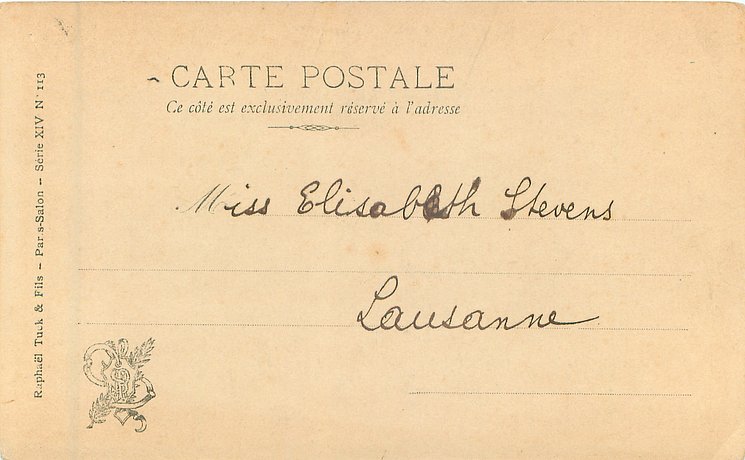 CARTE POSTALE
Ce côté est exclusivement réservé à l'adresse
Miss Elisabeth Stevens
Lausanne
Raphaël Tuck & Fils – Paris-Salon – Série XIV N° 113